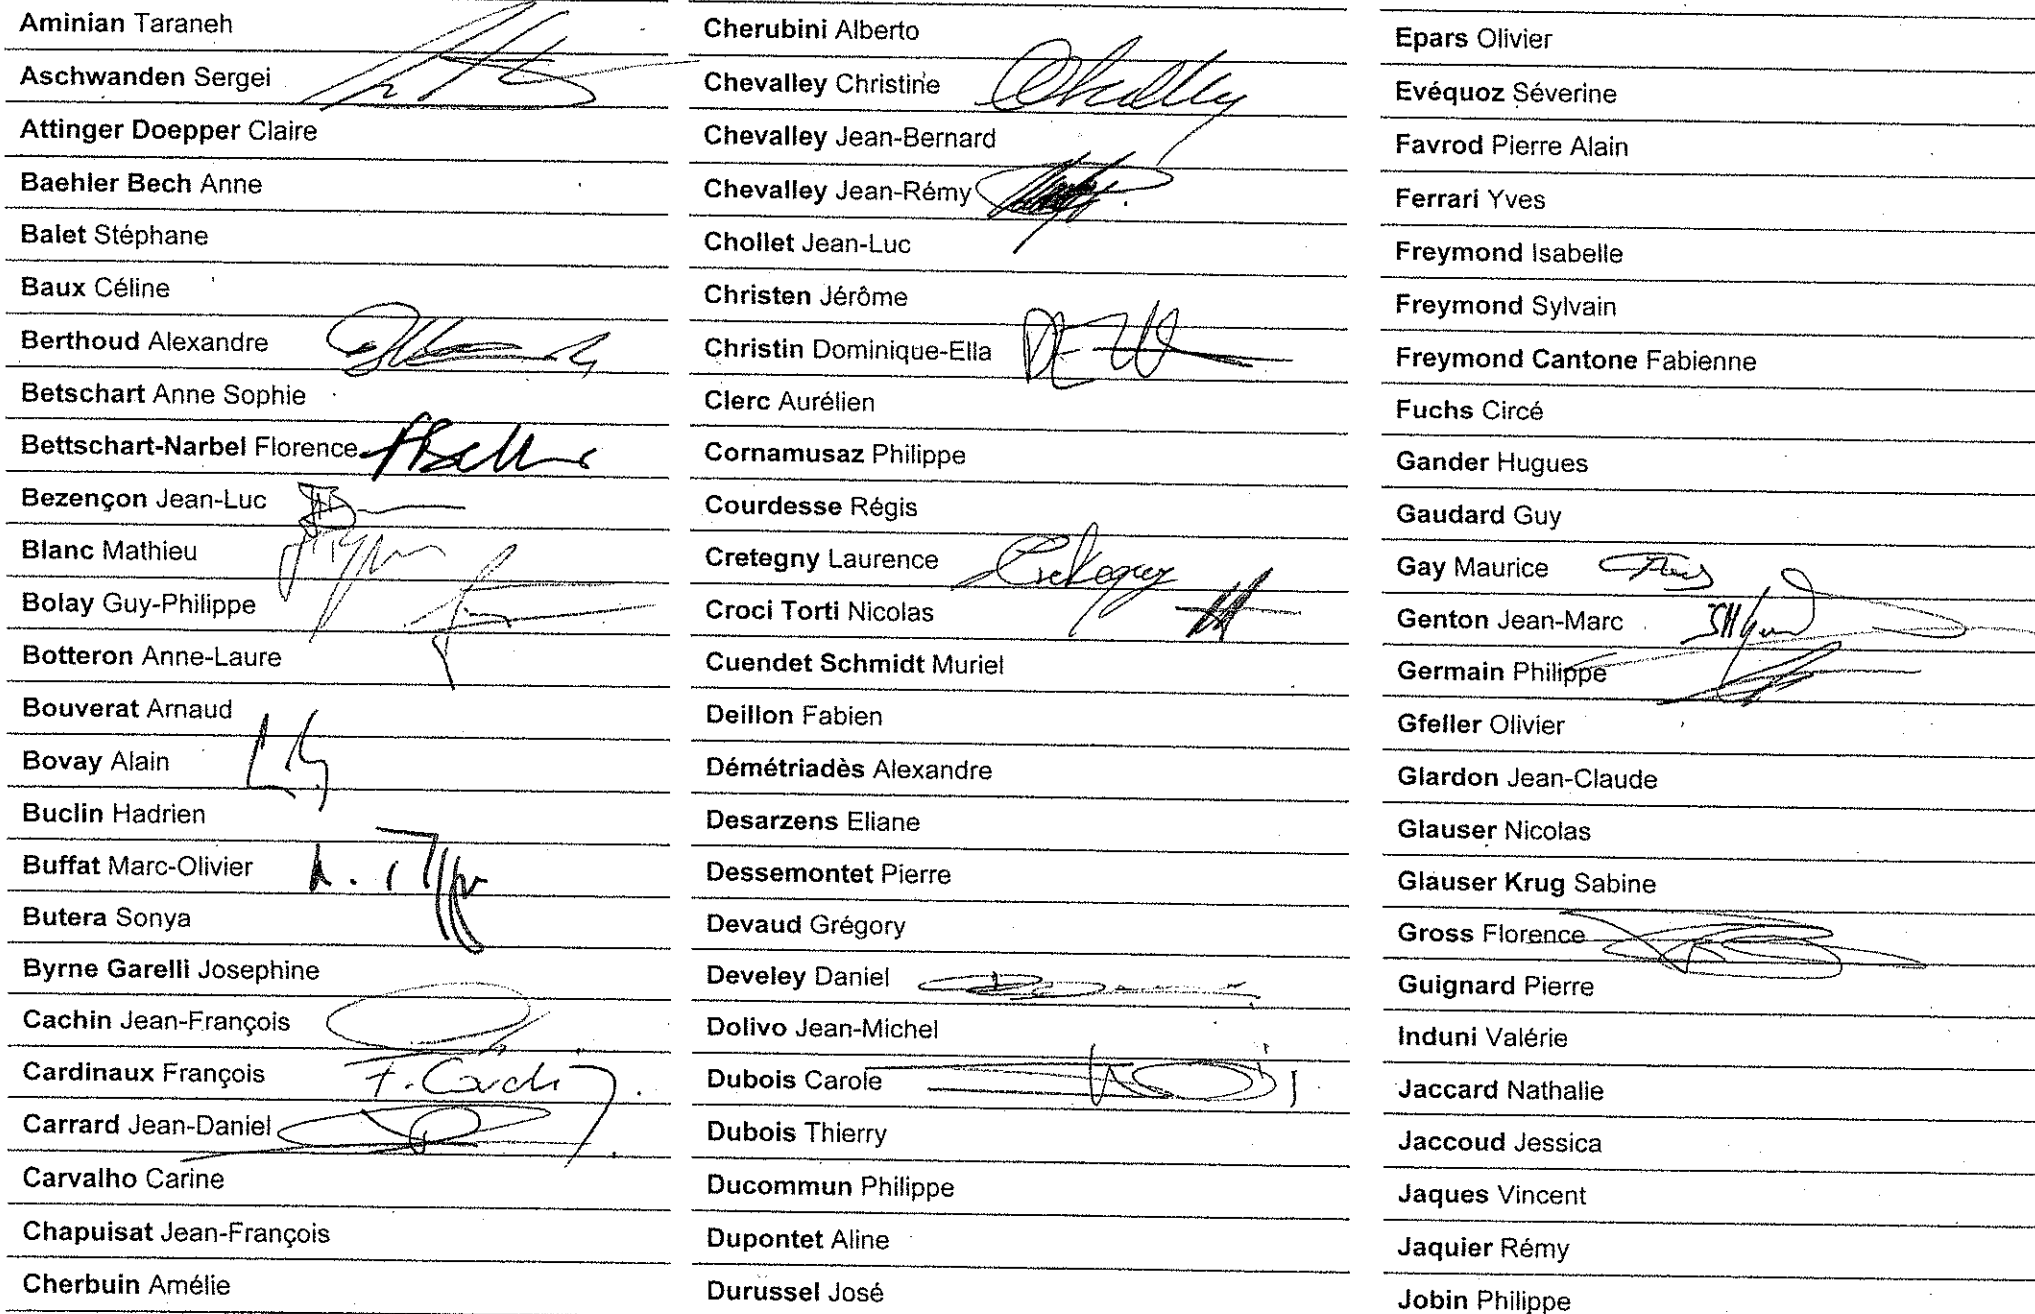 Aminian Taraneh
Aschwanden Sergei
Attinger Doepper Claire
Baehler Bech Anne
Balet Stéphane
Baux Céline
Berthoud Alexandre
Betschart Anne Sophie
Bettschart-Narbel Florence
Bezençon Jean-Luc
Blanc Mathieu
Bolay Guy-Philippe
Botteron Anne-Laure
Bouverat Arnaud
Bovay Alain
Buclin Hadrien
Buffat Marc-Olivier
Butera Sonya
Byrne Garelli Josephine
Cachin Jean-François
Cardinaux François
Carrard Jean-Daniel
Carvalho Carine
Chapuisat Jean-François
Cherbuin Amélie
Cherubini Alberto
Chevalley Christine
Chevalley Jean-Bernard
Chevalley Jean-Rémy
Chollet Jean-Luc
Christen Jérôme
Christin Dominique-Ella
Clerc Aurélien
Cornamusaz Philippe
Courdesse Régis
Cretegny Laurence Cretegny
Croci Torti Nicolas
Cuendet Schmidt Muriel
Deillon Fabien
Démétriadès Alexandre
Desarzens Eliane
Dessemontet Pierre
Devaud Grégory
Develey Daniel
Dolivo Jean-Michel
Dubois Carole
Dubois Thierry
Ducommun Philippe
Dupontet Aline
Durussel José
Epars Olivier
Evéquoz Séverine
Favrod Pierre Alain
Ferrari Yves
Freymond Isabelle
Freymond Sylvain
Freymond Cantone Fabienne
Fuchs Circé
Gander Hugues
Gaudard Guy
Gay Maurice
Genton Jean-Marc
Germain Philippe
Gfeller Olivier
Glardon Jean-Claude
Glauser Nicolas
Glauser Krug Sabine
Gross Florence
Guignard Pierre
Induni Valérie
Jaccard Nathalie
Jaccoud Jessica
Jaques Vincent
Jaquier Rémy
Jobin Philippe